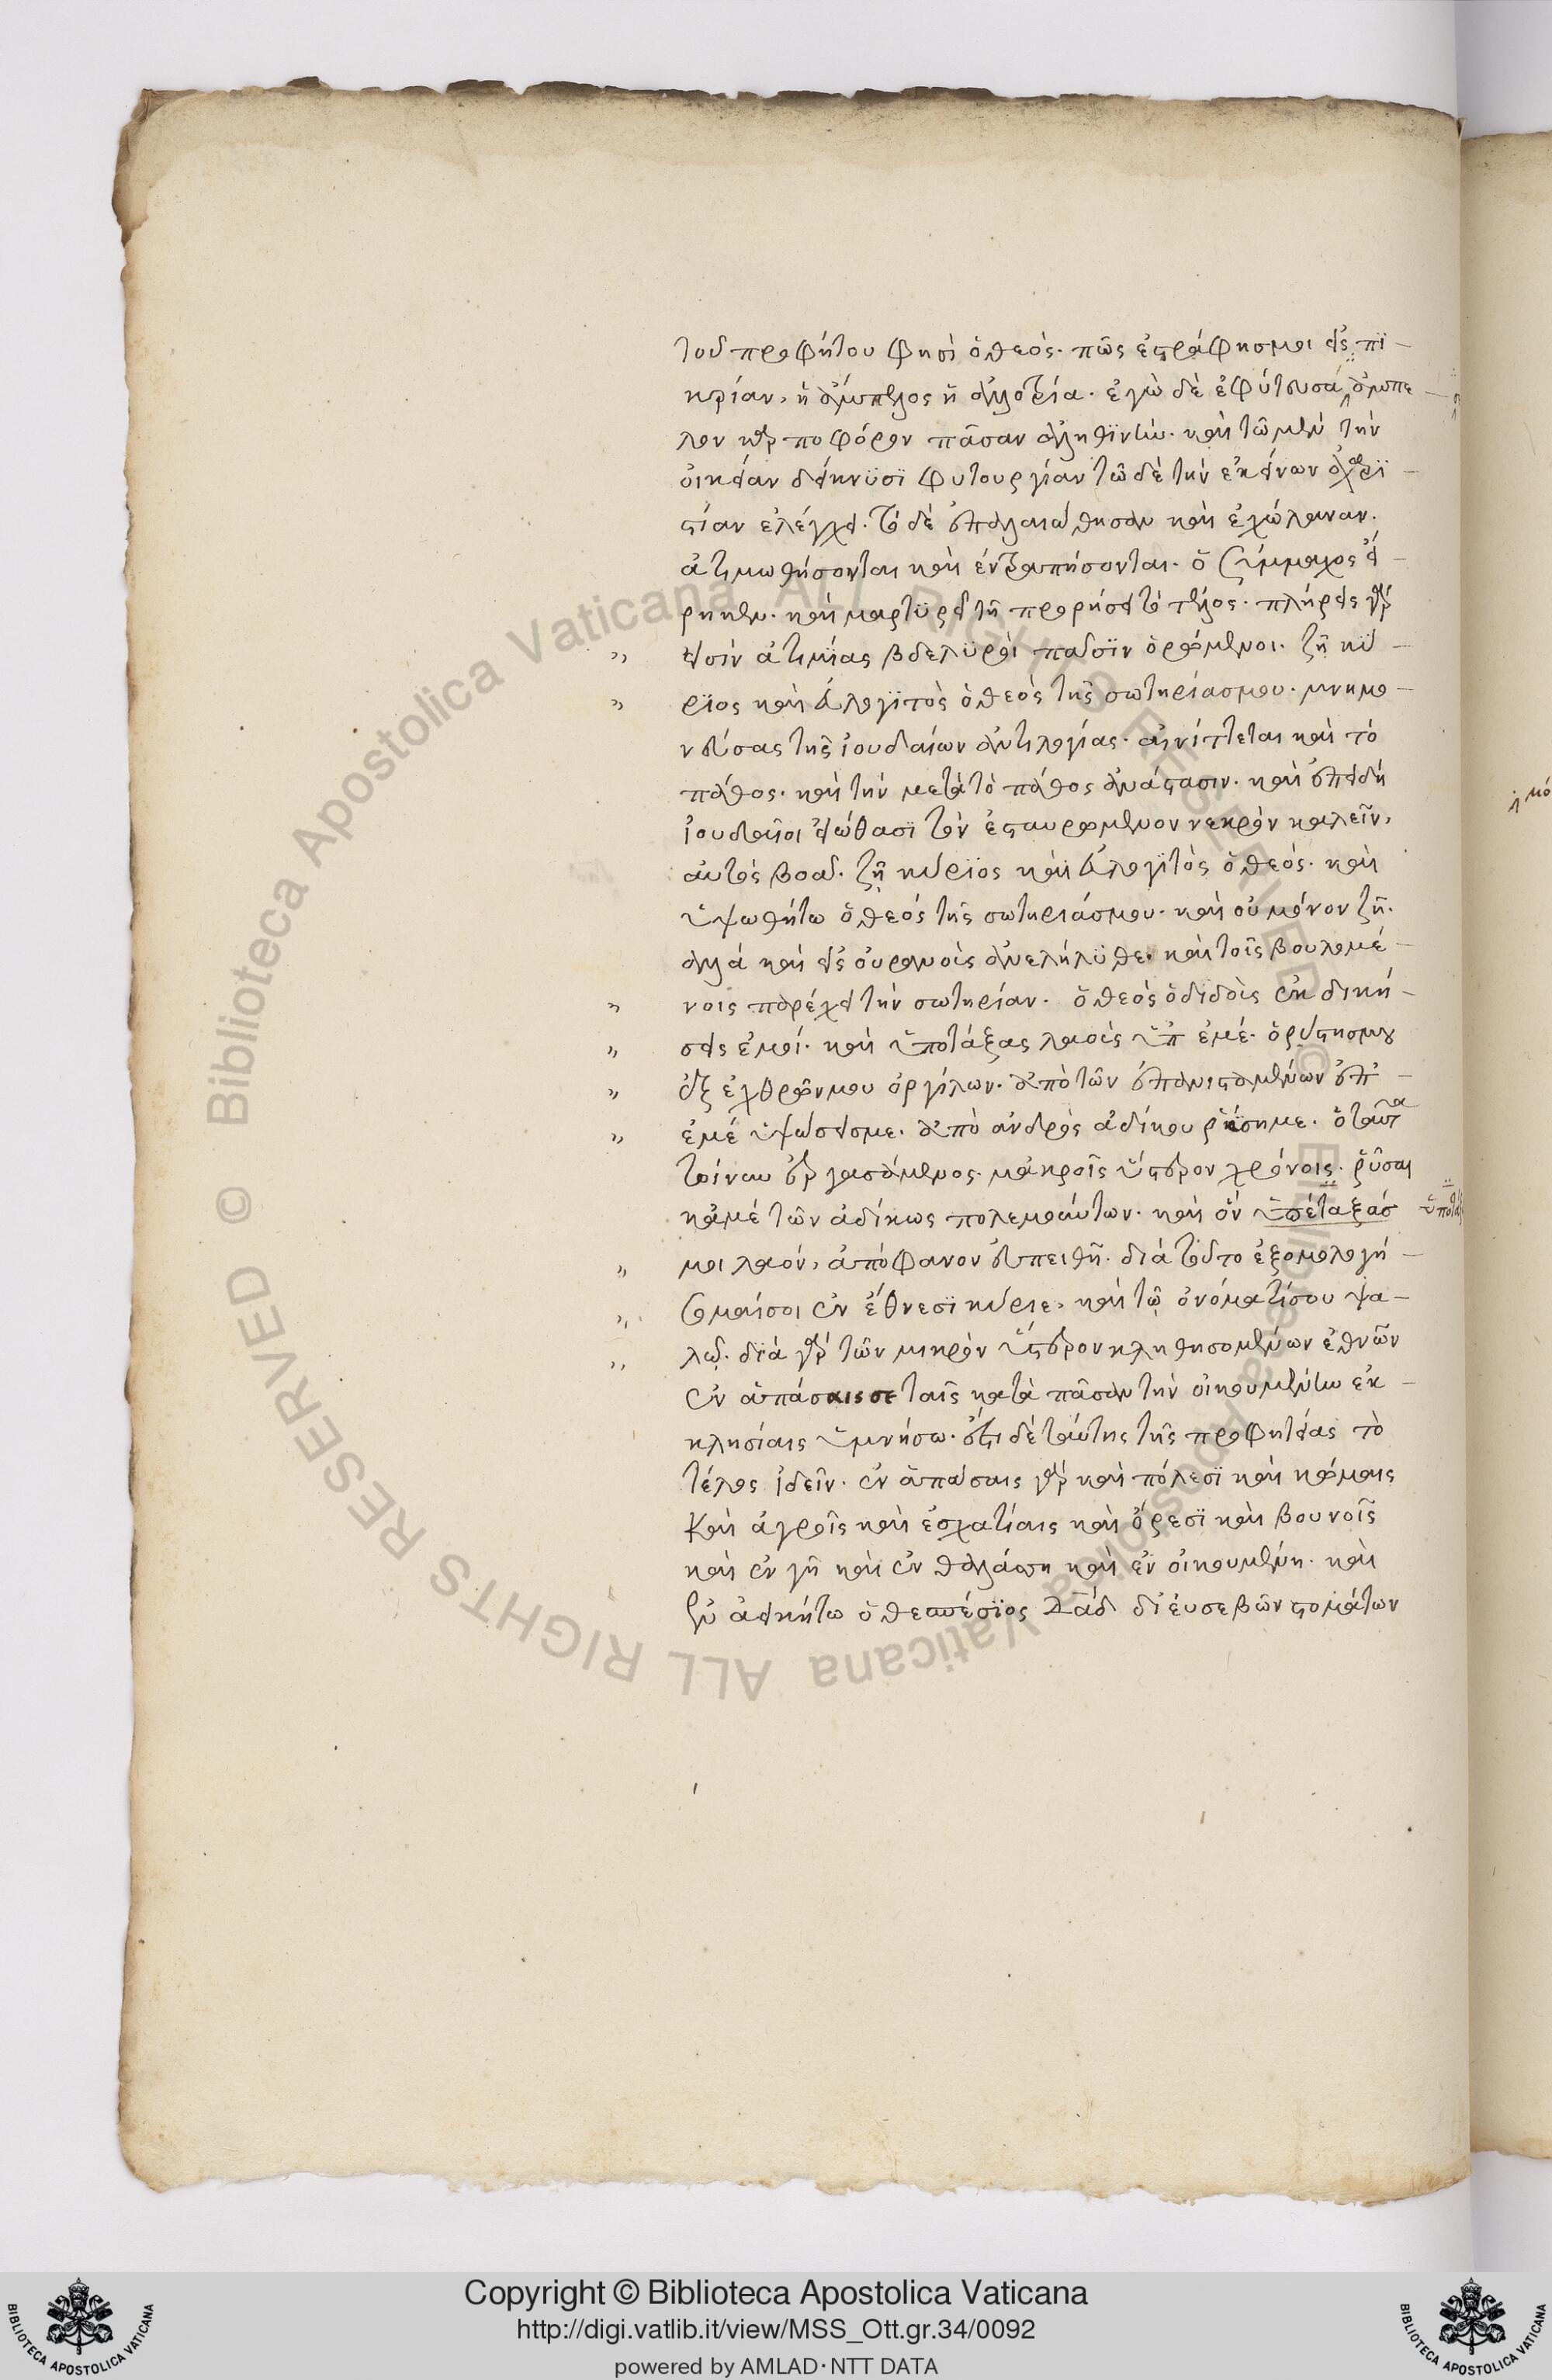 τοῦ προφήτου φησὶ ὁ θεός· πῶς ἐστράφης μοι εἰς πϊ-
κρίαν, ἡ ἄμπελος ἡ ἀλλοτρία. ἐγὼ δὲ ἐφύτευσά ἄμπε
λον καρποφόρον πᾶσαν ἀληθϊνήν. καὶ τῶ μὲν τὴν
οἰκείαν δείκνϋσϊ φυτουργίαν τῶ δὲ τὴν ἐκείνων ἀχαρϊ-
στίαν ἐλέγχει. τὸ δὲ ἐπαλαιώθησαν καὶ ἐχώλαναν.
ἀτιμωθήσονται καὶ ἐντραπήσονται. ὁ Σύμμαχος εἴ-
ρηκεν. καὶ μαρτϋρεῖ τῆ προρρήσει τὸ τέλος. πλήρεις γάρ
εἰσϊν ἀτιμίας βδελϋροὶ πᾶσϊν ὁρώμενοι. ζῆ κύ-
ρϊος καὶ εὐλογϊτὸς ὁ θεὸς τῆς σωτηρίας μου. μνημο-
νεύσας τῆς ἰουδαίων ἀντιλογίας. αἰνίττεται καὶ τὸ
πάθος. καὶ τὴν μετὰ τὸ πάθος ἀνάστασιν. καὶ ἐπειδὴ
ἰουδαῖοι εἰώθασϊ τὸν ἐσταυρωμένον νεκρὸν καλεῖν,
αὐτὸς βοᾶ. ζῆ κύρϊος καὶ εὐλογϊτὸς ὁ θεός. καὶ
ὑψωθήτω ὁ θεός τῆς σωτηρίας μου. καὶ οὐ μόνον ζῆ.
ἀλλὰ καὶ εἰς οὐρανοὺς ἀνελήλϋθε. καὶ τοῖς βουλομέ-
νοις παρέχει τὴν σωτηρίαν. ὁ θεὸς ὁ διδοὺς ἐκδική-
σεις ἐμοί. καὶ ὑποτάξας λαοὺς ὑπ ἐμέ. ὁ ῥύστης μου
ἐξ ἐχθρῶν μου ὀργίλων. ἀπὸ τῶν ἐπανισταμένων ἐπ
ἐμέ ὑψώσεις με. ἀπὸ ἀνδρὸς ἀδίκου ῥύση με. ὁ ταῦτα
τοίνυν ἐργασάμενος. μακροῖς ὕστερον χρόνοις. ῥῦσαι
κἀμὲ τῶν ἀδίκως πολεμούντων. καὶ ὃν ὑπέταξάσ
μοι λαόν, ἀπόφανον εὐπειθῆ. διὰ τοῦτο ἐξομολογή-
σομαί σοι ἐν ἔθνεσϊ κύριε, καὶ τῷ ὀνόματί σου ψα-
λῶ. διὰ γὰρ τῶν μικρὸν ὕστερον κληθησομένων ἐθνῶν
ἐν ἁπάσαις σε ταῖς κατὰ πᾶσαν τὴν οἰκουμένην ἐκ-
κλησίαις ὑμνήσω. ἔστι δὲ ταύτης τῆς προφητείας τὸ
τέλος ἰδεῖν. ἐν ἁπάσαις γὰρ καὶ πόλεσϊ καὶ κώμαις
καὶ ἀγροῖς καὶ ἐσχατίαις καὶ ὄρεσϊ καὶ βουνοῖς
καὶ ἐν γῆ καὶ ἐν θαλάσση καὶ ἐν οἰκουμένη. καὶ
ἀεικήτω ὁ θεσπέσϊος Δαδ δι' εὐσεβῶν στομάτων